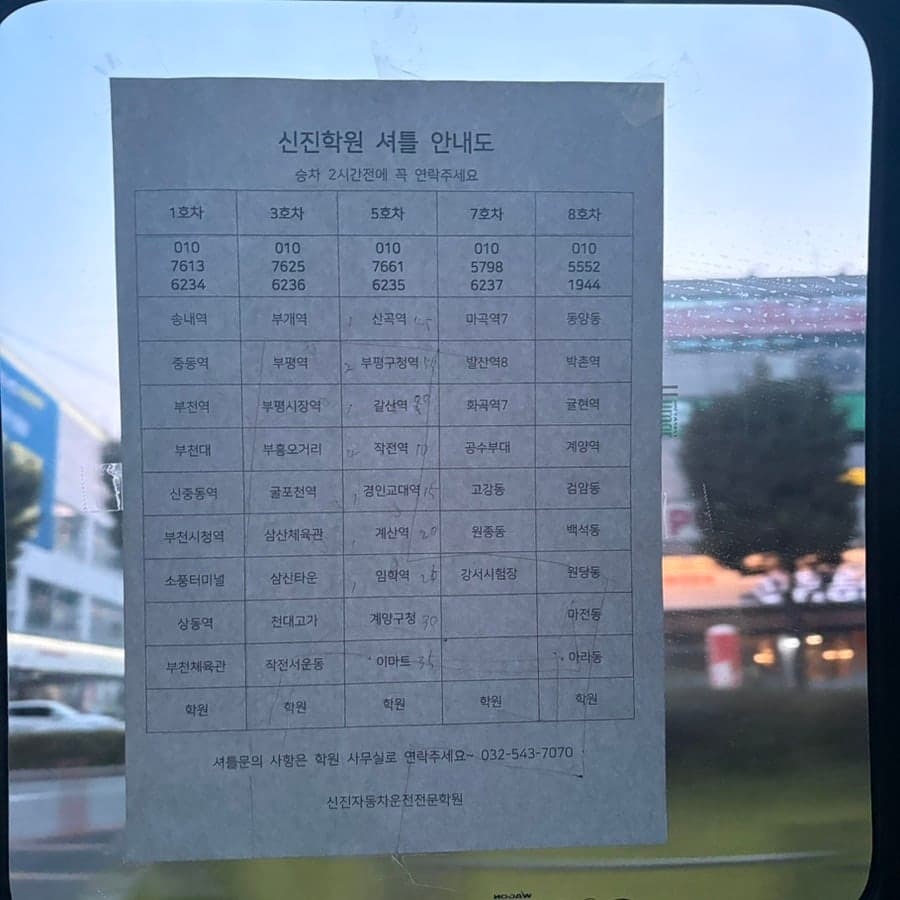 신진학원 셔틀 안내도
승차 2시간전에 꼭 연락주세요
1호차 3호차 5호차 7호차 8호차
010 010 010 010 010
7613 7625 7661 5798 5552
6234 6236 6235 6237 1944
송내역 부개역 산곡역 마곡역7 동양동
중동역 부평역 부평구청역 발산역8 박촌역
부천역 부평시장역 갈산역 화곡역7 귤현역
부천대 부흥오거리 작전역 10 공수부대 계양역
신중동역 굴포천역 경인교대역 15 고강동 검암동
부천시청역 삼산체육관 계산역 20 원종동 백석동
소풍터미널 삼신타운 임학역 25 강서시험장 원당동
상동역 천대고가 계양구청 30 마전동
부천체육관 작전서운동 이마트 35 아라동
학원 학원 학원 학원 학원
셔틀문의 사항은 학원 사무실로 연락주세요~ 032-543-7070
신진자동차운전전문학원